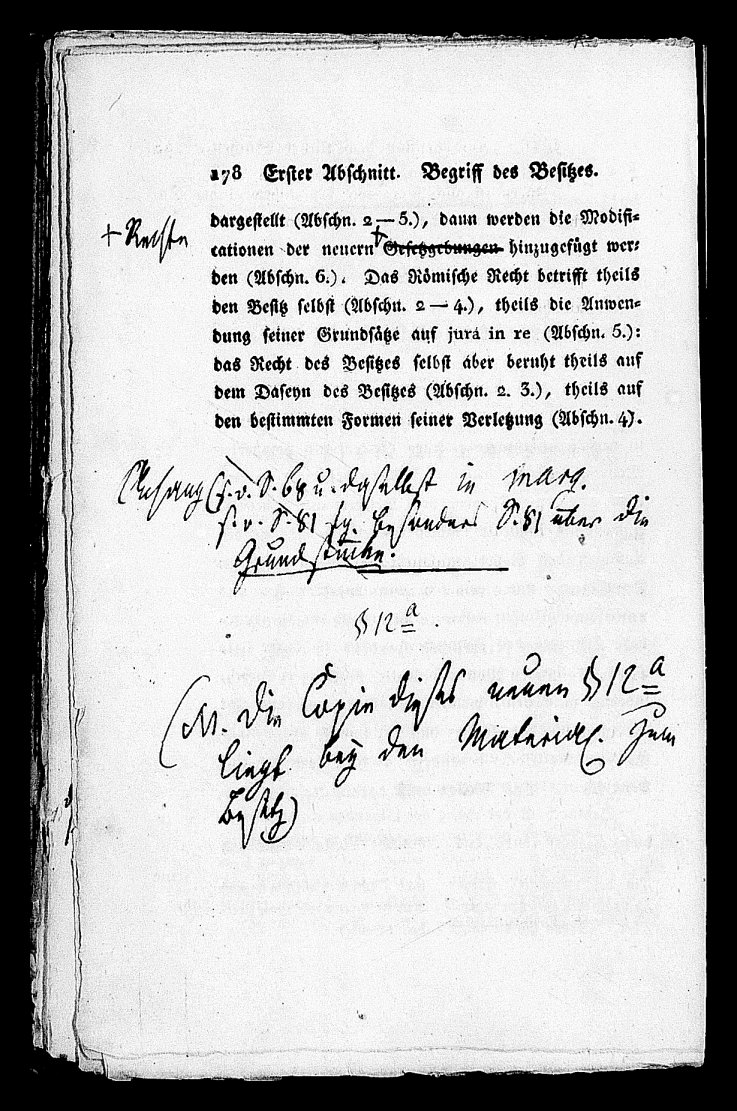 178 Erster Abschnitt. Begriff des Besitzes.
dargestellt (Abschn. 2—5.), dann werden die Modifi-
+ Rechte
cationen der neuern + Gesetzgebungen hinzugefügt wer-
den (Abschn. 6.). Das Römische Recht betrifft theils
den Besitz selbst (Abschn. 2—4.), theils die Anwen-
dung seiner Grundsätze auf jura in re (Abschn. 5.):
das Recht des Besitzes selbst aber beruht theils auf
dem Daseyn des Besitzes (Abschn. 2. 3.), theils auf
den bestimmten Formen seiner Verletzung (Abschn. 4).
Anhang (s. o. S. 68 u. daselbst in marg.
s. o. S. 81 fg. besonders S. 81 über die
Grundstücke.
§ 12 a.
(N. Die Copie dieses neuen § 12 a
liegt bey den Material. zum
Besitz)